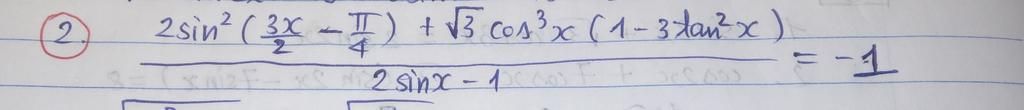 2. \frac{2sin^2(\frac{3x}{2} - \frac{π}{4}) + \sqrt{3} cos^3x (1 - 3tan^2x)}{2sinx - 1} = -1